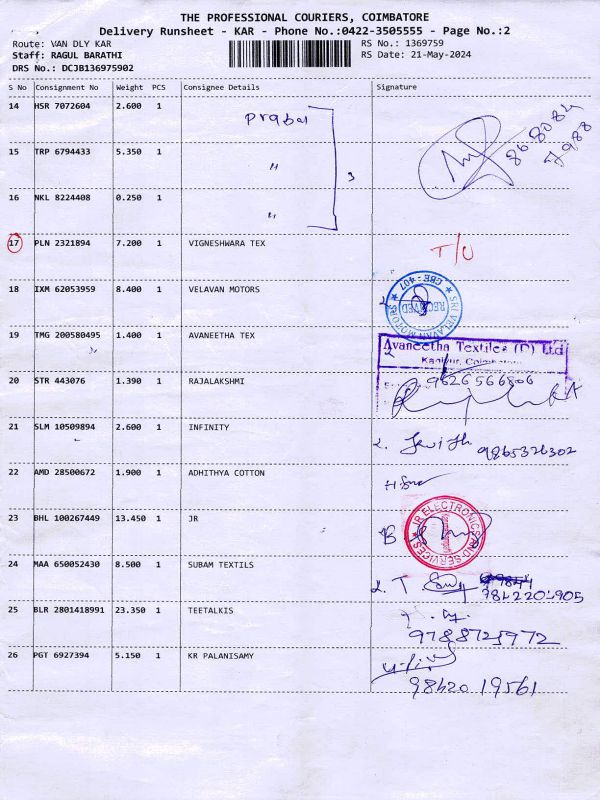 THE PROFESSIONAL COURIERS, COIMBATORE
Delivery Runsheet - KAR - Phone No.:0422-3505555 - Page No.:2
Route: VAN DLY KAR
RS No.: 1369759
Staff: RAGUL BARATHI
RS Date: 21-May-2024
DRS No.: DCJB136975902
S No Consignment No Weight PCS Consignee Details Signature
14 HSR 7072604 2.600 1 Prabar
868084
7988
15 TRP 6794433 5.350 1 "
3
16 NKL 8224408 0.250 1 "
17 PLN 2321894 7.200 1 VIGNESHWARA TEX T/U
18 IXM 62053959 8.400 1 VELAVAN MOTORS
SRI VELAVAN MOTORS
CBE - 407
RECEIVED
19 TMG 200580495 1.400 1 AVANEETHA TEX
Avaneetha Textiles (P) Ltd
Kaniyur, Coimbatore
20 STR 443076 1.390 1 RAJALAKSHMI 9626566806
21 SLM 10509894 2.600 1 INFINITY 9865326302
22 AMD 28500672 1.900 1 ADHITHYA COTTON
23 BHL 100267449 13.450 1 JR
JR ELECTRONICS AND SERVICES
24 MAA 650052430 8.500 1 SUBAM TEXTILS
9842202905
25 BLR 2801418991 23.350 1 TEETALKIS
9788725972
26 PGT 6927394 5.150 1 KR PALANISAMY
98420 19561